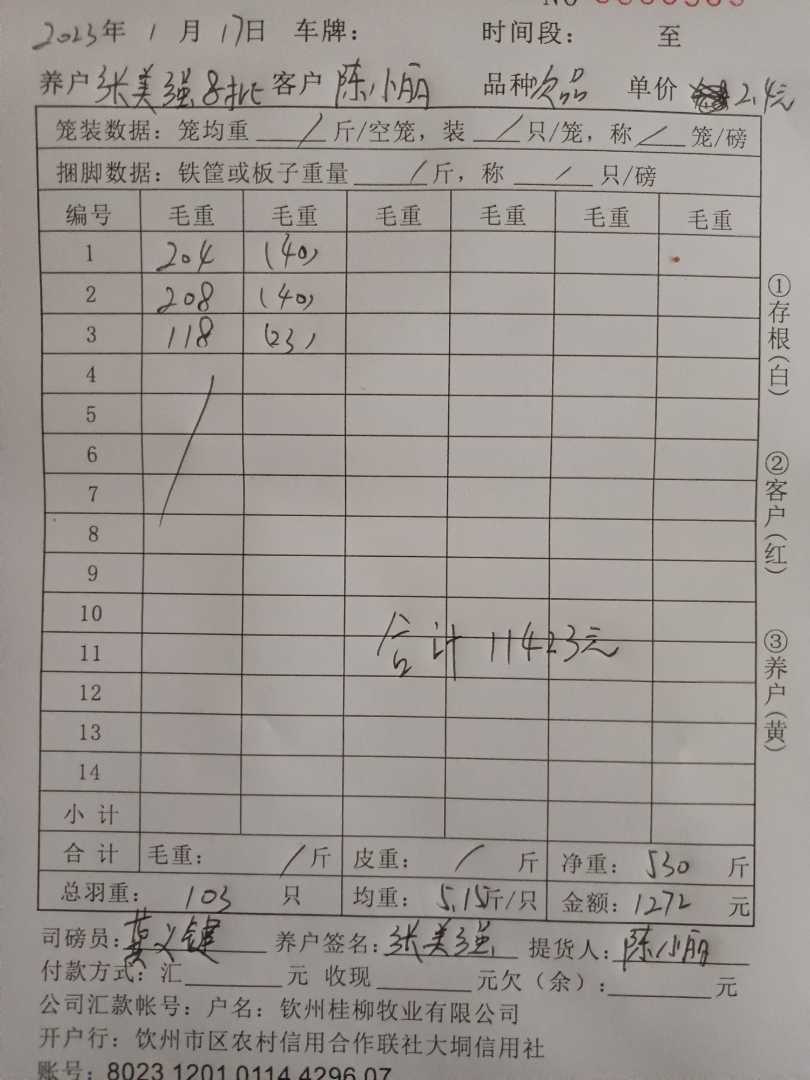 2023年 1 月 17日 车牌： 时间段： 至
养户 张美强8批 客户 陈小丽 品种 次品 单价 2.4元
笼装数据：笼均重 / 斤/空笼，装 / 只/笼，称 / 笼/磅
捆脚数据：铁筐或板子重量 / 斤，称 / 只/磅
编号 毛重 毛重 毛重 毛重 毛重 毛重
1 204 (40)
2 208 (40)
3 118 (23)
4
5
6
7
8
9
10
11 合计 11423元
12
13
14
小 计
合 计 毛重： / 斤 皮重： / 斤 净重：530 斤
总羽重： 103 只 均重：5.15斤/只 金额：1272 元
司磅员： 养户签名：张美强 提货人：陈小丽
付款方式：汇 元 收现 元欠（余）： 元
公司汇款帐号：户名：钦州桂柳牧业有限公司
开户行：饮州市区农村信用合作联社大垌信用社
账号：8023 1201 0114 4296 07
①存根（白）
②客户（红）
③养户（黄）